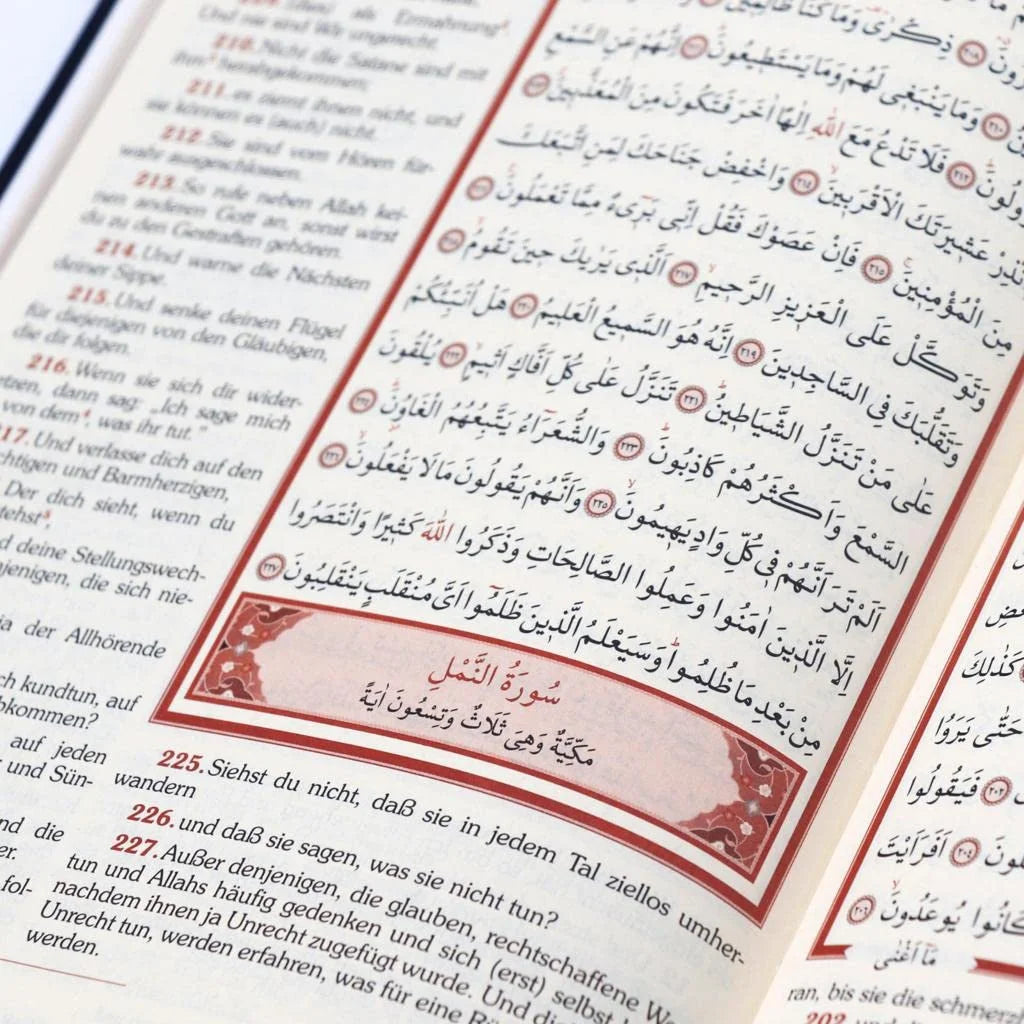 ذِكْرٰى وَمَا كُنَّا ظَالِمٖينَ
وَمَا يَنْبَغٖى لَهُمْ وَمَا يَسْتَطٖيعُونَ ﴿٢١١﴾ اِنَّهُمْ عَنِ السَّمْعِ
فَلَا تَدْعُ مَعَ اللّٰهِ اِلٰهًا اٰخَرَ فَتَكُونَ مِنَ الْمُعَذَّبٖينَ ﴿٢١٣﴾
عَشٖيرَتَكَ الْاَقْرَبٖينَ ﴿٢١٤﴾ وَاخْفِضْ جَنَاحَكَ لِمَنِ اتَّبَعَكَ
مِنَ الْمُؤْمِنٖينَ ﴿٢١٥﴾ فَاِنْ عَصَوْكَ فَقُلْ اِنّٖى بَرٖٓىءٌ مِمَّا تَعْمَلُونَ ﴿٢١٦﴾
وَتَوَكَّلْ عَلَى الْعَزٖيزِ الرَّحٖيمِ ﴿٢١٧﴾ اَلَّذٖى يَرٰيكَ حٖينَ تَقُومُ ﴿٢١٨﴾
وَتَقَلُّبَكَ فِى السَّاجِدٖينَ ﴿٢١٩﴾ اِنَّهُ هُوَ السَّمٖيعُ الْعَلٖيمُ ﴿٢٢٠﴾ هَلْ اُنَبِّئُكُمْ
عَلٰى مَنْ تَنَزَّلُ الشَّيَاطٖينُ ﴿٢٢١﴾ تَنَزَّلُ عَلٰى كُلِّ اَفَّاكٍ اَثٖيمٍ ﴿٢٢٢﴾ يُلْقُونَ
السَّمْعَ وَاَكْثَرُهُمْ كَاذِبُونَ ﴿٢٢٣﴾ وَالشُّعَرَٓاءُ يَتَّبِعُهُمُ الْغَاوُنَ ﴿٢٢٤﴾
اَلَمْ تَرَ اَنَّهُمْ فٖى كُلِّ وَادٍ يَهٖيمُونَ ﴿٢٢٥﴾ وَاَنَّهُمْ يَقُولُونَ مَا لَا يَفْعَلُونَ ﴿٢٢٦﴾
اِلَّا الَّذٖينَ اٰمَنُوا وَعَمِلُوا الصَّالِحَاتِ وَذَكَرُوا اللّٰهَ كَثٖيرًا وَانْتَصَرُوا
مِنْ بَعْدِ مَا ظُلِمُوا وَسَيَعْلَمُ الَّذٖينَ ظَلَمُٓوا اَىَّ مُنْقَلَبٍ يَنْقَلِبُونَ ﴿٢٢٧﴾
سُورَةُ النَّمْلِ
مَكِّيَّةٌ وَهِىَ ثَلَاثٌ وَتِسْعُونَ اٰيَةً
als Ermahnung
Und nie sind Wir ungerecht.
210. Nicht die Satane sind mit
ihm herabgekommen;
211. es ziemt ihnen nicht, und
sie können es (auch) nicht.
212. Sie sind vom Hören für-
wahr ausgeschlossen.
213. So rufe neben Allah kei-
nen anderen Gott an, sonst wirst
du zu den Gestraften gehören.
214. Und warne die Nächsten
deiner Sippe.
215. Und senke deinen Flügel
für diejenigen von den Gläubigen,
die dir folgen.
216. Wenn sie sich dir wider-
setzen, dann sag: „Ich sage mich
von dem⁴, was ihr tut."
217. Und verlasse dich auf den
chtigen und Barmherzigen,
Der dich sieht, wenn du
tehst⁵,
d deine Stellungswech-
njenigen, die sich nie-
ja der Allhörende
ch kundtun, auf
bkommen?
auf jeden
und Sün-
nd die
er.
fol-
225. Siehst du nicht, daß sie in jedem Tal ziellos umher-
wandern
226. und daß sie sagen, was sie nicht tun?
227. Außer denjenigen, die glauben, rechtschaffene We
tun und Allahs häufig gedenken und sich (erst) selbst
nachdem ihnen ja Unrecht zugefügt wurde. Und di
Unrecht tun, werden erfahren, was für eine Rü
werden.
كَذٰلِكَ
حَتّٰى يَرَوُا
فَيَقُولُوا
اَفَرَاَيْتَ
كَانُوا يُوعَدُونَ ﴿٢٠٦﴾
مَٓا اَغْنٰى
ran, bis sie die schmerzl
202.